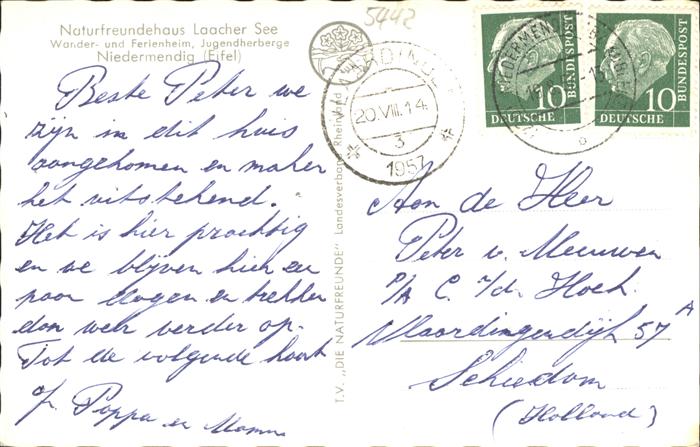 Naturfreundehaus Laacher See
Wander- und Ferienheim, Jugendherberge
Niedermendig (Eifel)
5442
Beste Peter we
zijn in dit huis
aangekomen en maken
het uitstekend.
Het is hier prachtig
en we blijven hier een
paar dagen en trekken
dan weer verder op.
Tot de volgende kaart
Poppa en Mamma
T.V. „DIE NATURFREUNDE" Landesverband Rheinland
20.VIII.14
3
1957
10
DEUTSCHE
BUNDESPOST
10
DEUTSCHE
BUNDESPOST
NIEDERMENDIG
Aan de Heer
Peter v. Meeuwen
P/A C. v/d. Hoek
Vlaardingendijk 57 A
Schiedam
(Holland)